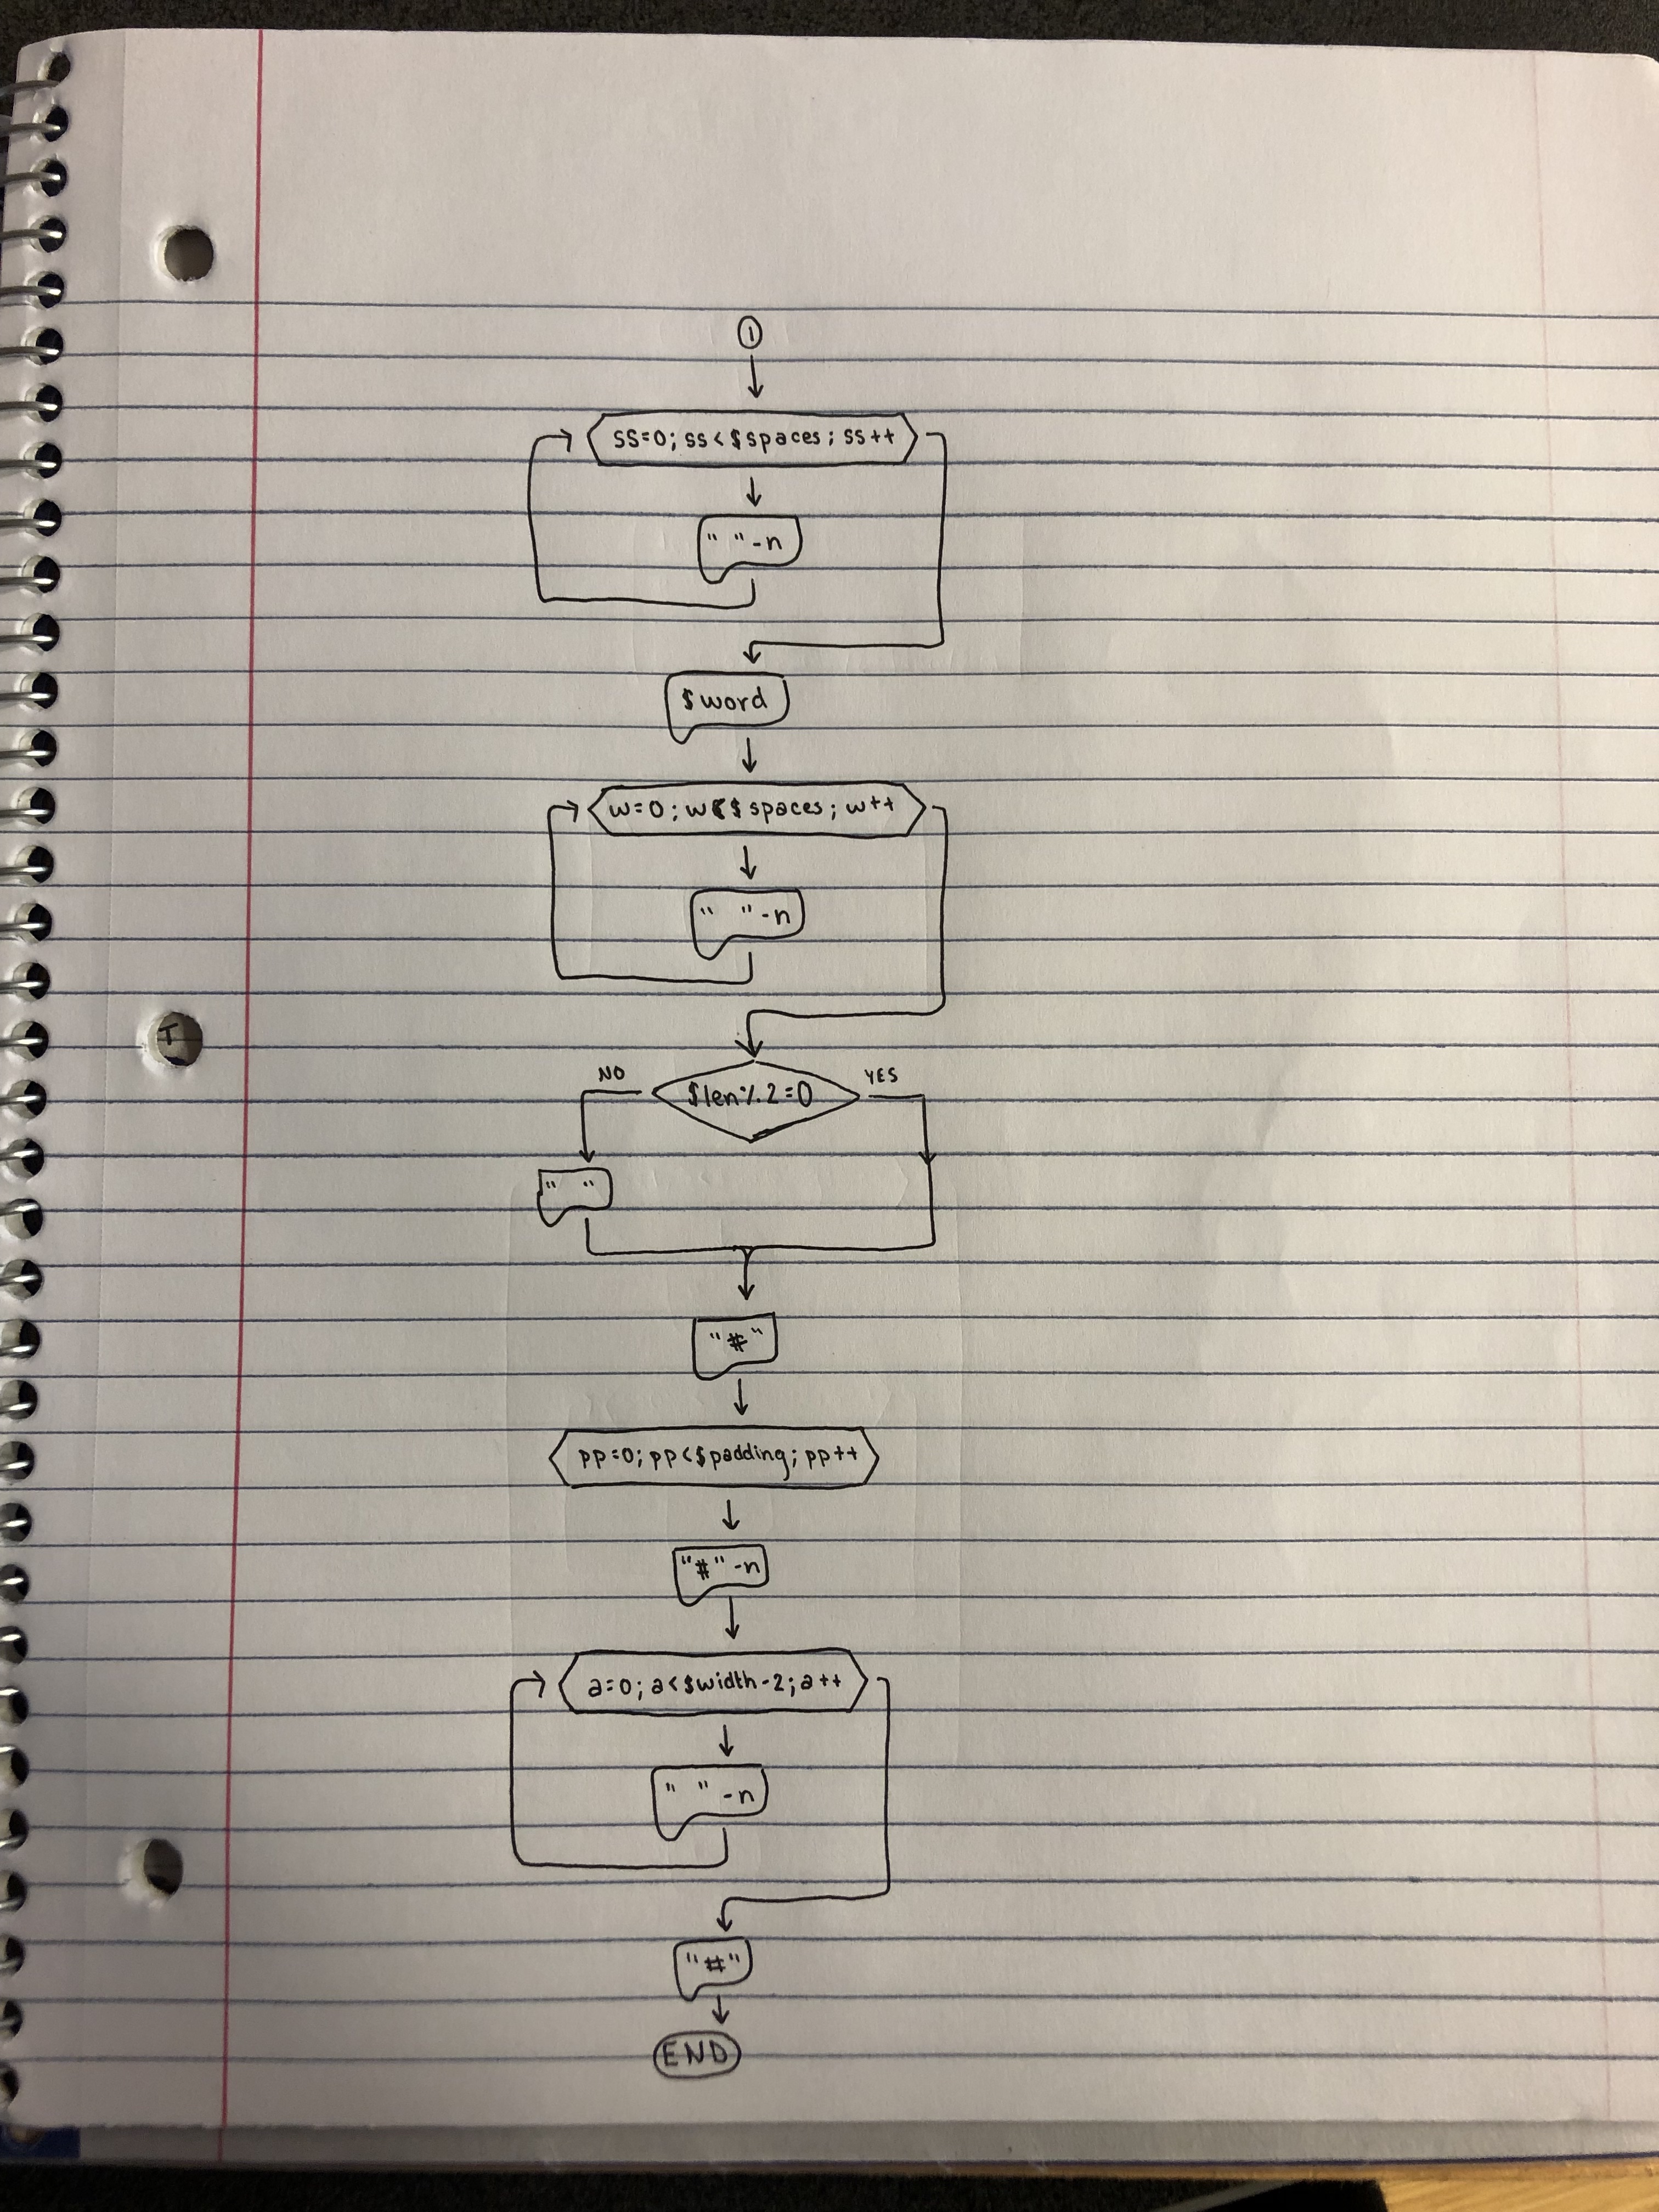 1
ss=0; ss<$spaces; ss++
" "-n
$word
w=0; w<$spaces; w++
" "-n
NO
YES
$len%2=0
" "
"#"
pp=0; pp<$padding; pp++
"#"-n
a=0; a<$width-2; a++
" "-n
"#"
END